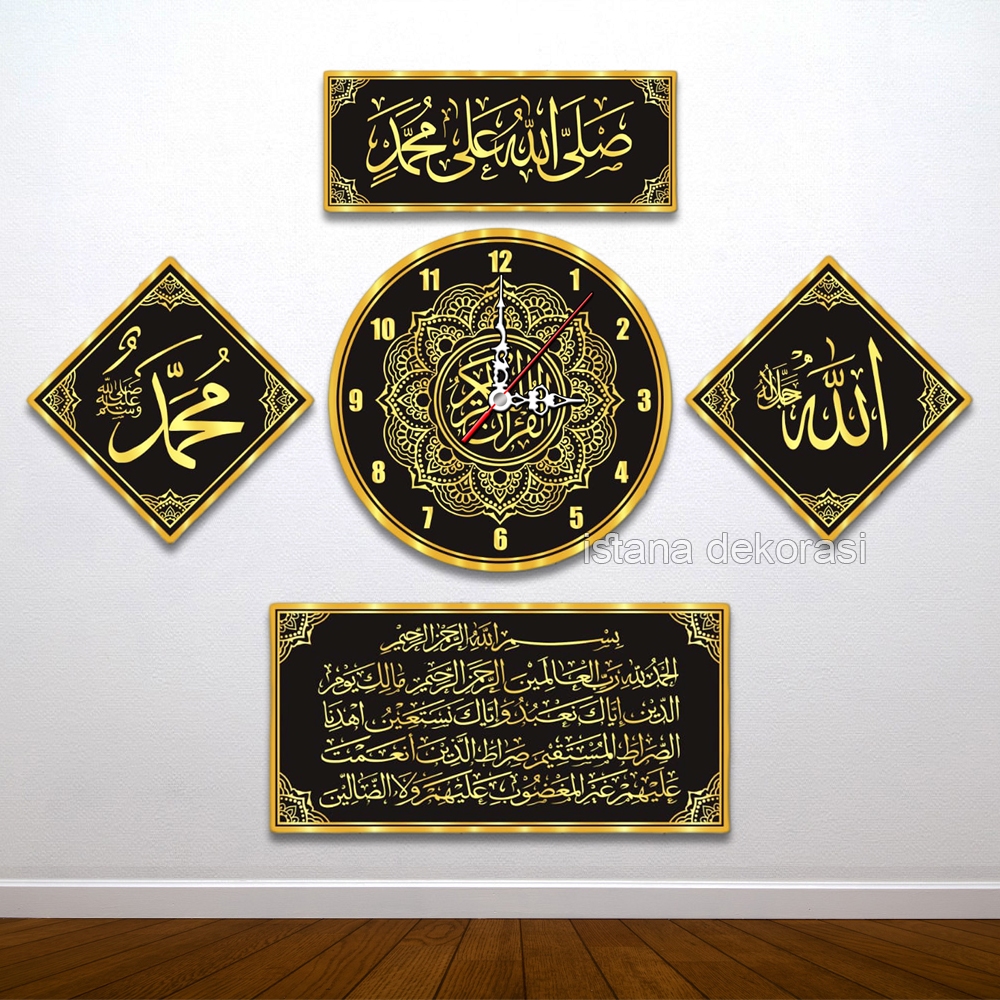 صَلَّى اللهُ عَلَى مُحَمَّدٍ
12
11 1
10 2
9 3
8 4
7 5
6
القرآن الكريم
مُحَمَّدٌ
صلى الله عليه وسلم
الله
جل جلاله
istana dekorasi
بِسْمِ اللهِ الرَّحْمٰنِ الرَّحِيْمِ
الحَمْدُ لِلّٰهِ رَبِّ العَالَمِيْنَ الرَّحْمٰنِ الرَّحِيْمِ مَالِكِ يَوْمِ
الدِّيْنِ إِيَّاكَ نَعْبُدُ وَإِيَّاكَ نَسْتَعِيْنُ اهْدِنَا
الصِّرَاطَ المُسْتَقِيْمَ صِرَاطَ الَّذِيْنَ أَنْعَمْتَ
عَلَيْهِمْ غَيْرِ المَغْضُوْبِ عَلَيْهِمْ وَلَا الضَّالِّيْنَ